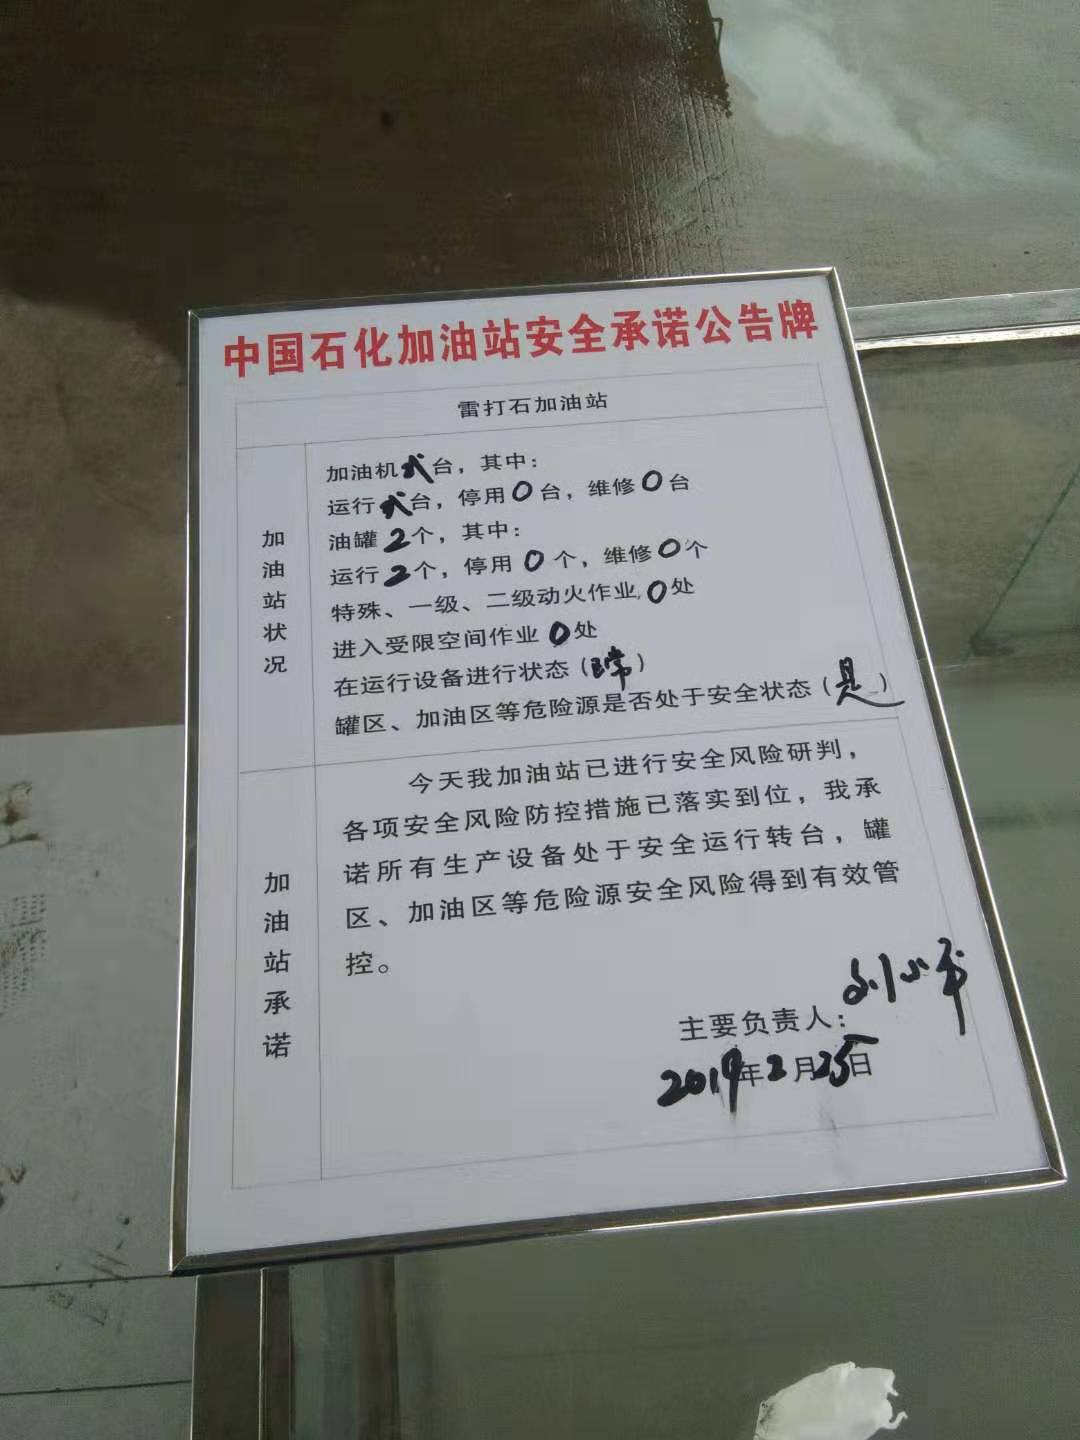 中国石化加油站安全承诺公告牌
雷打石加油站
加油站状况
加油机弍台，其中：
运行弍台，停用0台，维修0台
油罐2个，其中：
运行2个，停用0个，维修0个
特殊、一级、二级动火作业0处
进入受限空间作业0处
在运行设备进行状态（正常）
罐区、加油区等危险源是否处于安全状态（是）
加油站承诺
今天我加油站已进行安全风险研判，
各项安全风险防控措施已落实到位，我承
诺所有生产设备处于安全运行转台，罐
区、加油区等危险源安全风险得到有效管
控。
主要负责人：刘小平
2019年2月25日